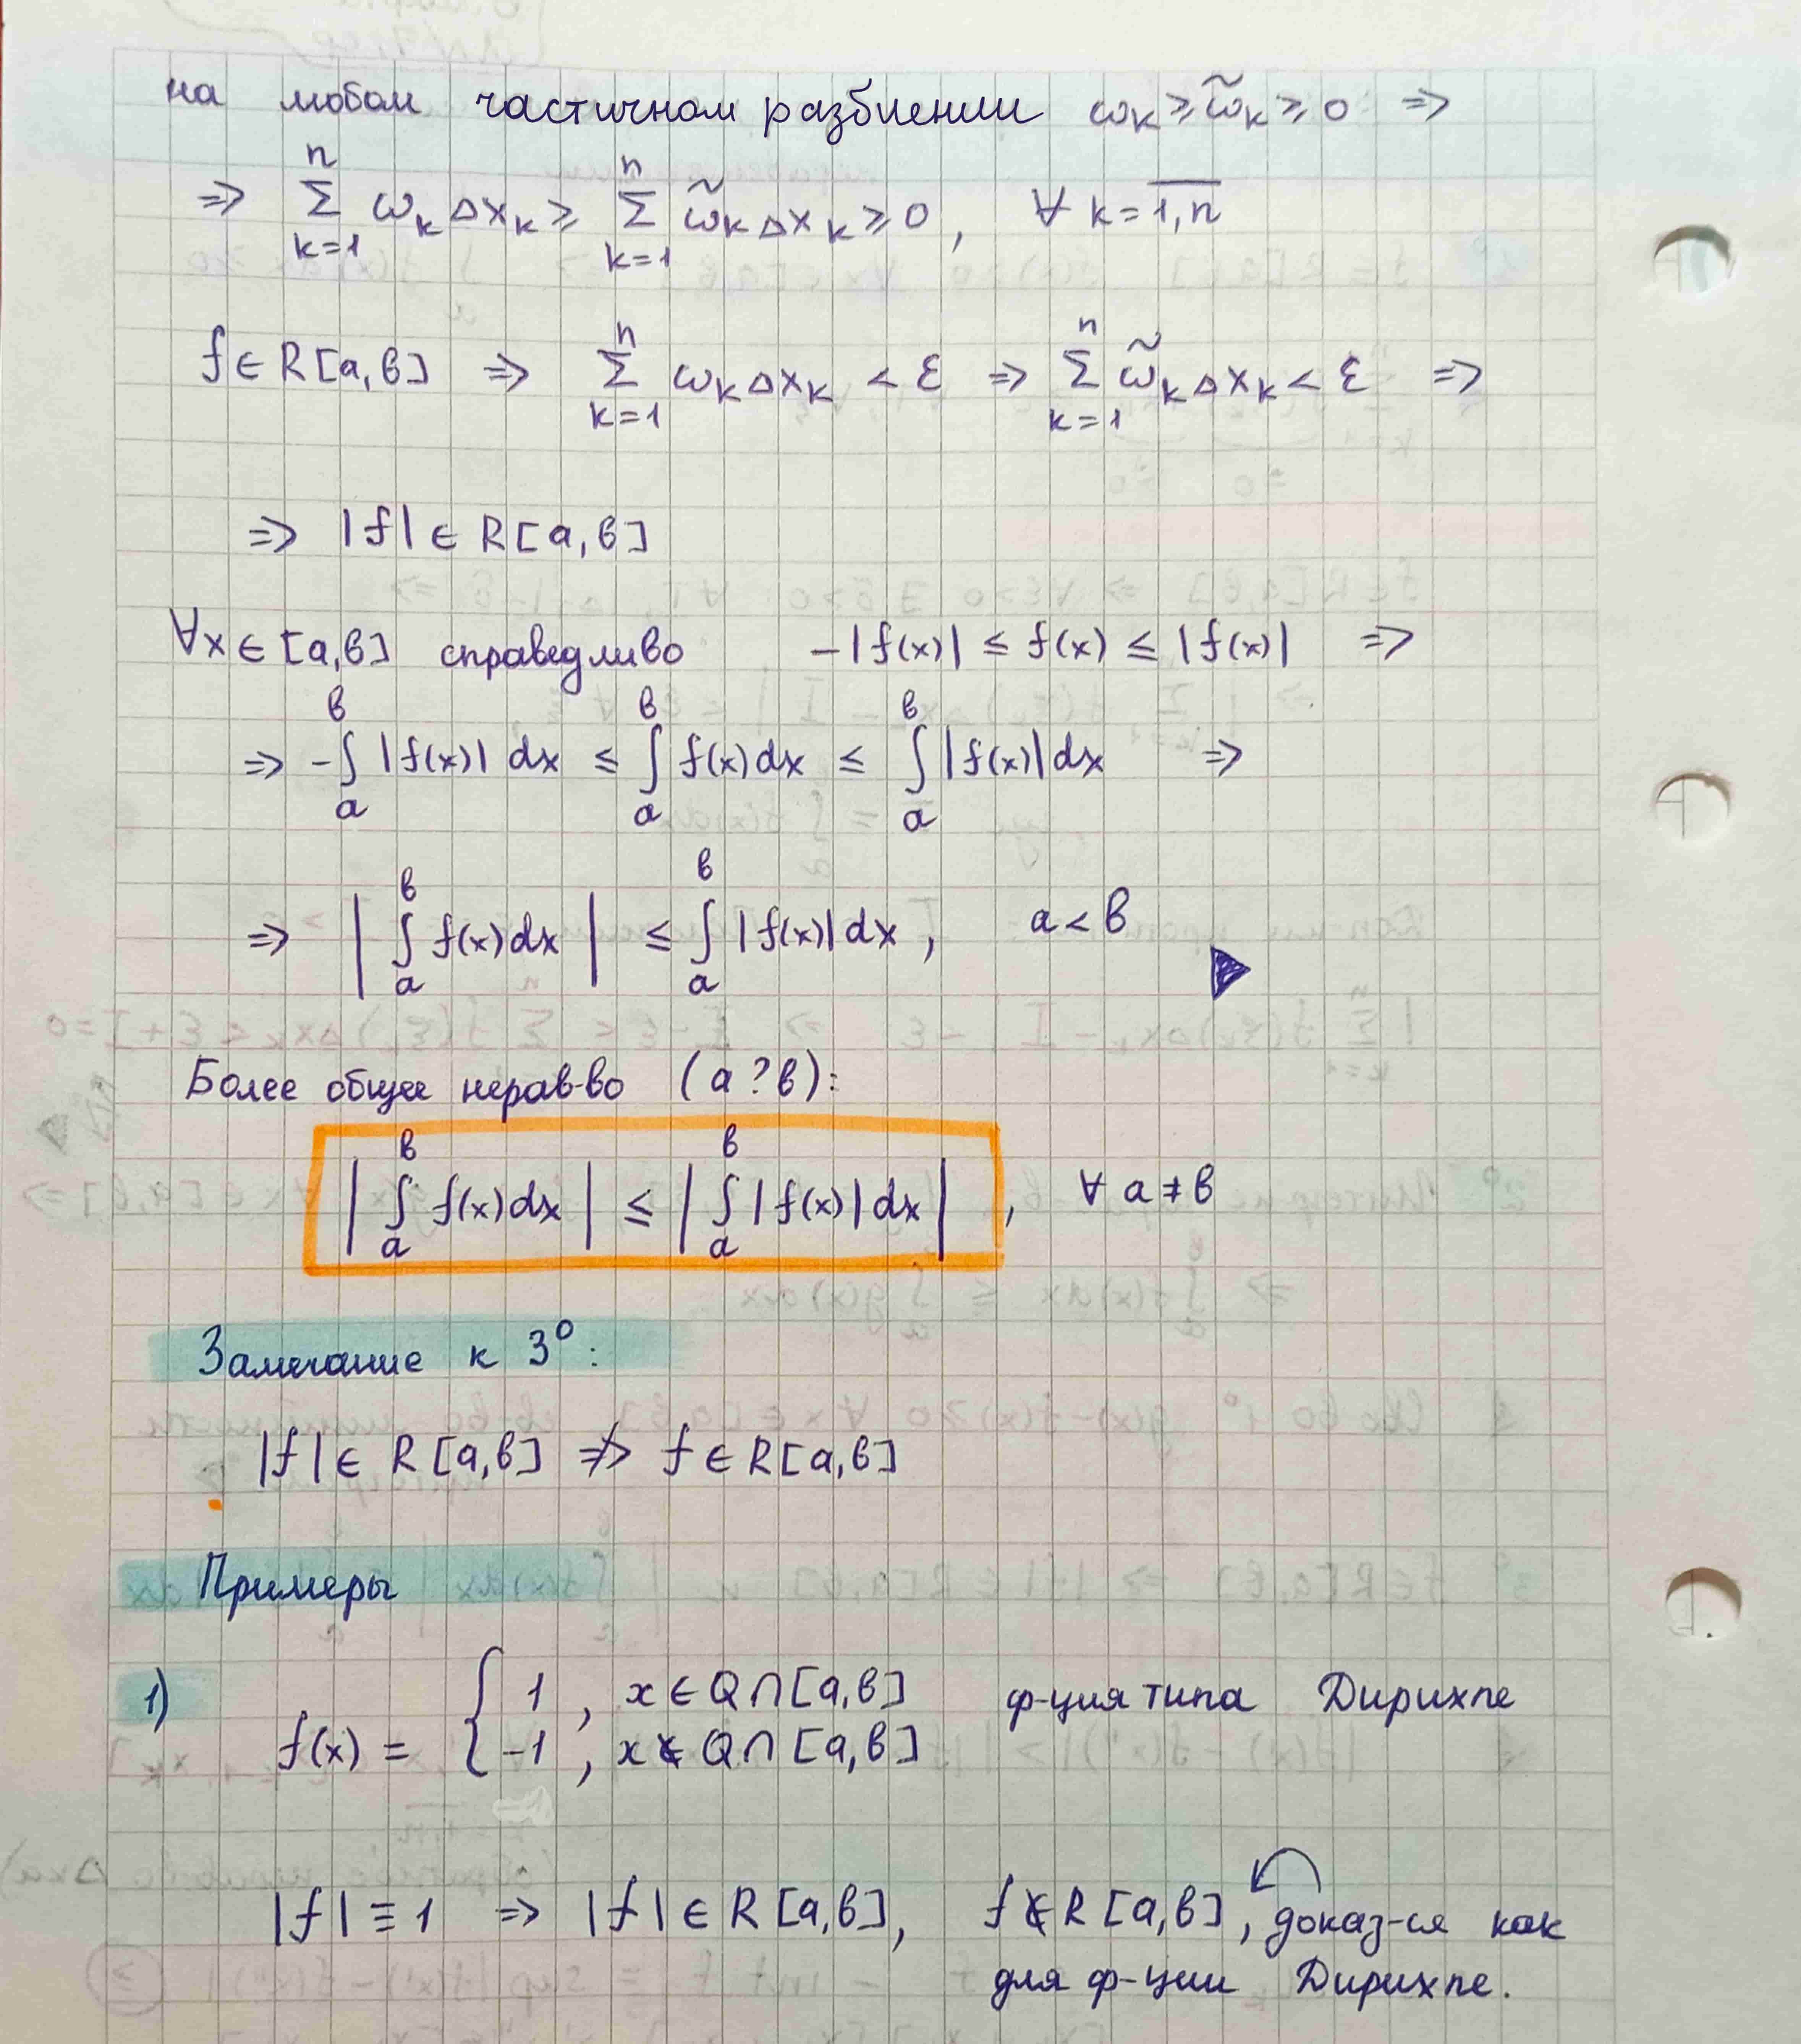 на любом частичном разбиении ωₖ ≥ ω̃ₖ ≥ 0 ⇒
⇒ ∑ₖ₌₁ⁿ ωₖ Δxₖ ≥ ∑ₖ₌₁ⁿ ω̃ₖ Δxₖ ≥ 0, ∀ k = 1,n̅
f ∈ R[a,b] ⇒ ∑ₖ₌₁ⁿ ωₖ Δxₖ < ε ⇒ ∑ₖ₌₁ⁿ ω̃ₖ Δxₖ < ε ⇒
⇒ |f| ∈ R[a,b]
∀x ∈ [a,b] справедливо -|f(x)| ≤ f(x) ≤ |f(x)| ⇒
⇒ -∫ₐᵇ |f(x)| dx ≤ ∫ₐᵇ f(x)dx ≤ ∫ₐᵇ |f(x)|dx ⇒
⇒ |∫ₐᵇ f(x)dx| ≤ ∫ₐᵇ |f(x)|dx, a < b
Более общее нерав-во (a ? b):
|∫ₐᵇ f(x)dx| ≤ |∫ₐᵇ |f(x)|dx|, ∀ a ≠ b
Замечание к 3⁰:
|f| ∈ R[a,b] ⇏ f ∈ R[a,b]
Примеры
1) f(x) = { 1, x ∈ Q∩[a,b] ф-ция типа Дирихле
-1, x ∉ Q∩[a,b]
|f| ≡ 1 ⇒ |f| ∈ R[a,b], f ∉ R[a,b], доказ-ся как
для ф-ции Дирихле.